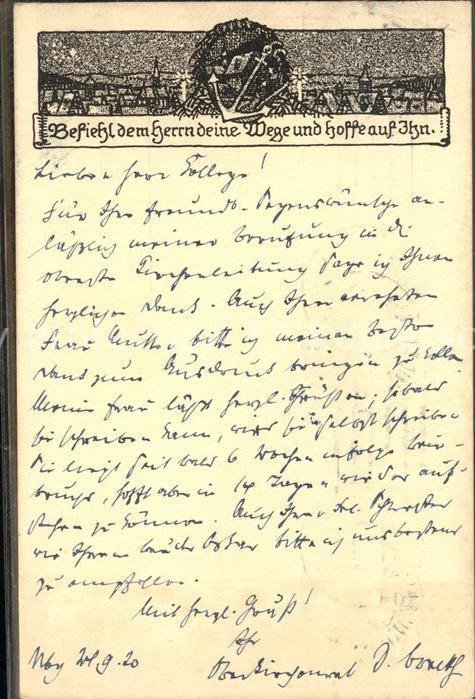 Befiehl dem Herrn deine Wege und hoffe auf Ihn.
Lieber Herr Kollege!
Für Ihre freundl. Segenswünsche an-
läßlich meiner Berufung in die
oberste Kirchenleitung sage ich Ihnen
herzlichen Dank. Auch Ihrer verehrten
Frau Mutter bitte ich meinen besten
Dank zum Ausdruck bringen zu wollen.
Meine Frau läßt herzl. grüßen, sobald
sie schreiben kann, wird sie selbst schreiben.
Sie liegt seit bald 6 Wochen infolge Bein-
bruchs, hofft aber in 14 Tagen wieder auf-
stehen zu können. Auch Ihrer Frl. Schwester
wie Ihrem Bruder Oskar bitte ich uns bestens
zu empfehlen.
Mit herzl. Gruß!
Ihr
Oberkirchenrat D.
Nbg 9.20